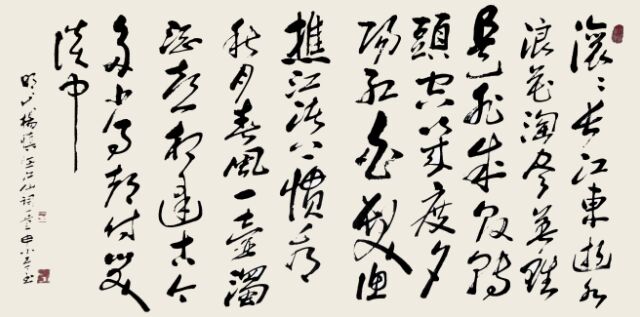 滚滚长江東逝水
浪花淘尽英雄
是非成败转
頭空幾度夕
陽红白髮渔
樵江渚上慣看
秋月春風一壶濁
酒喜相逢古今
多少事都付笑
談中
明人楊慎临江仙詞